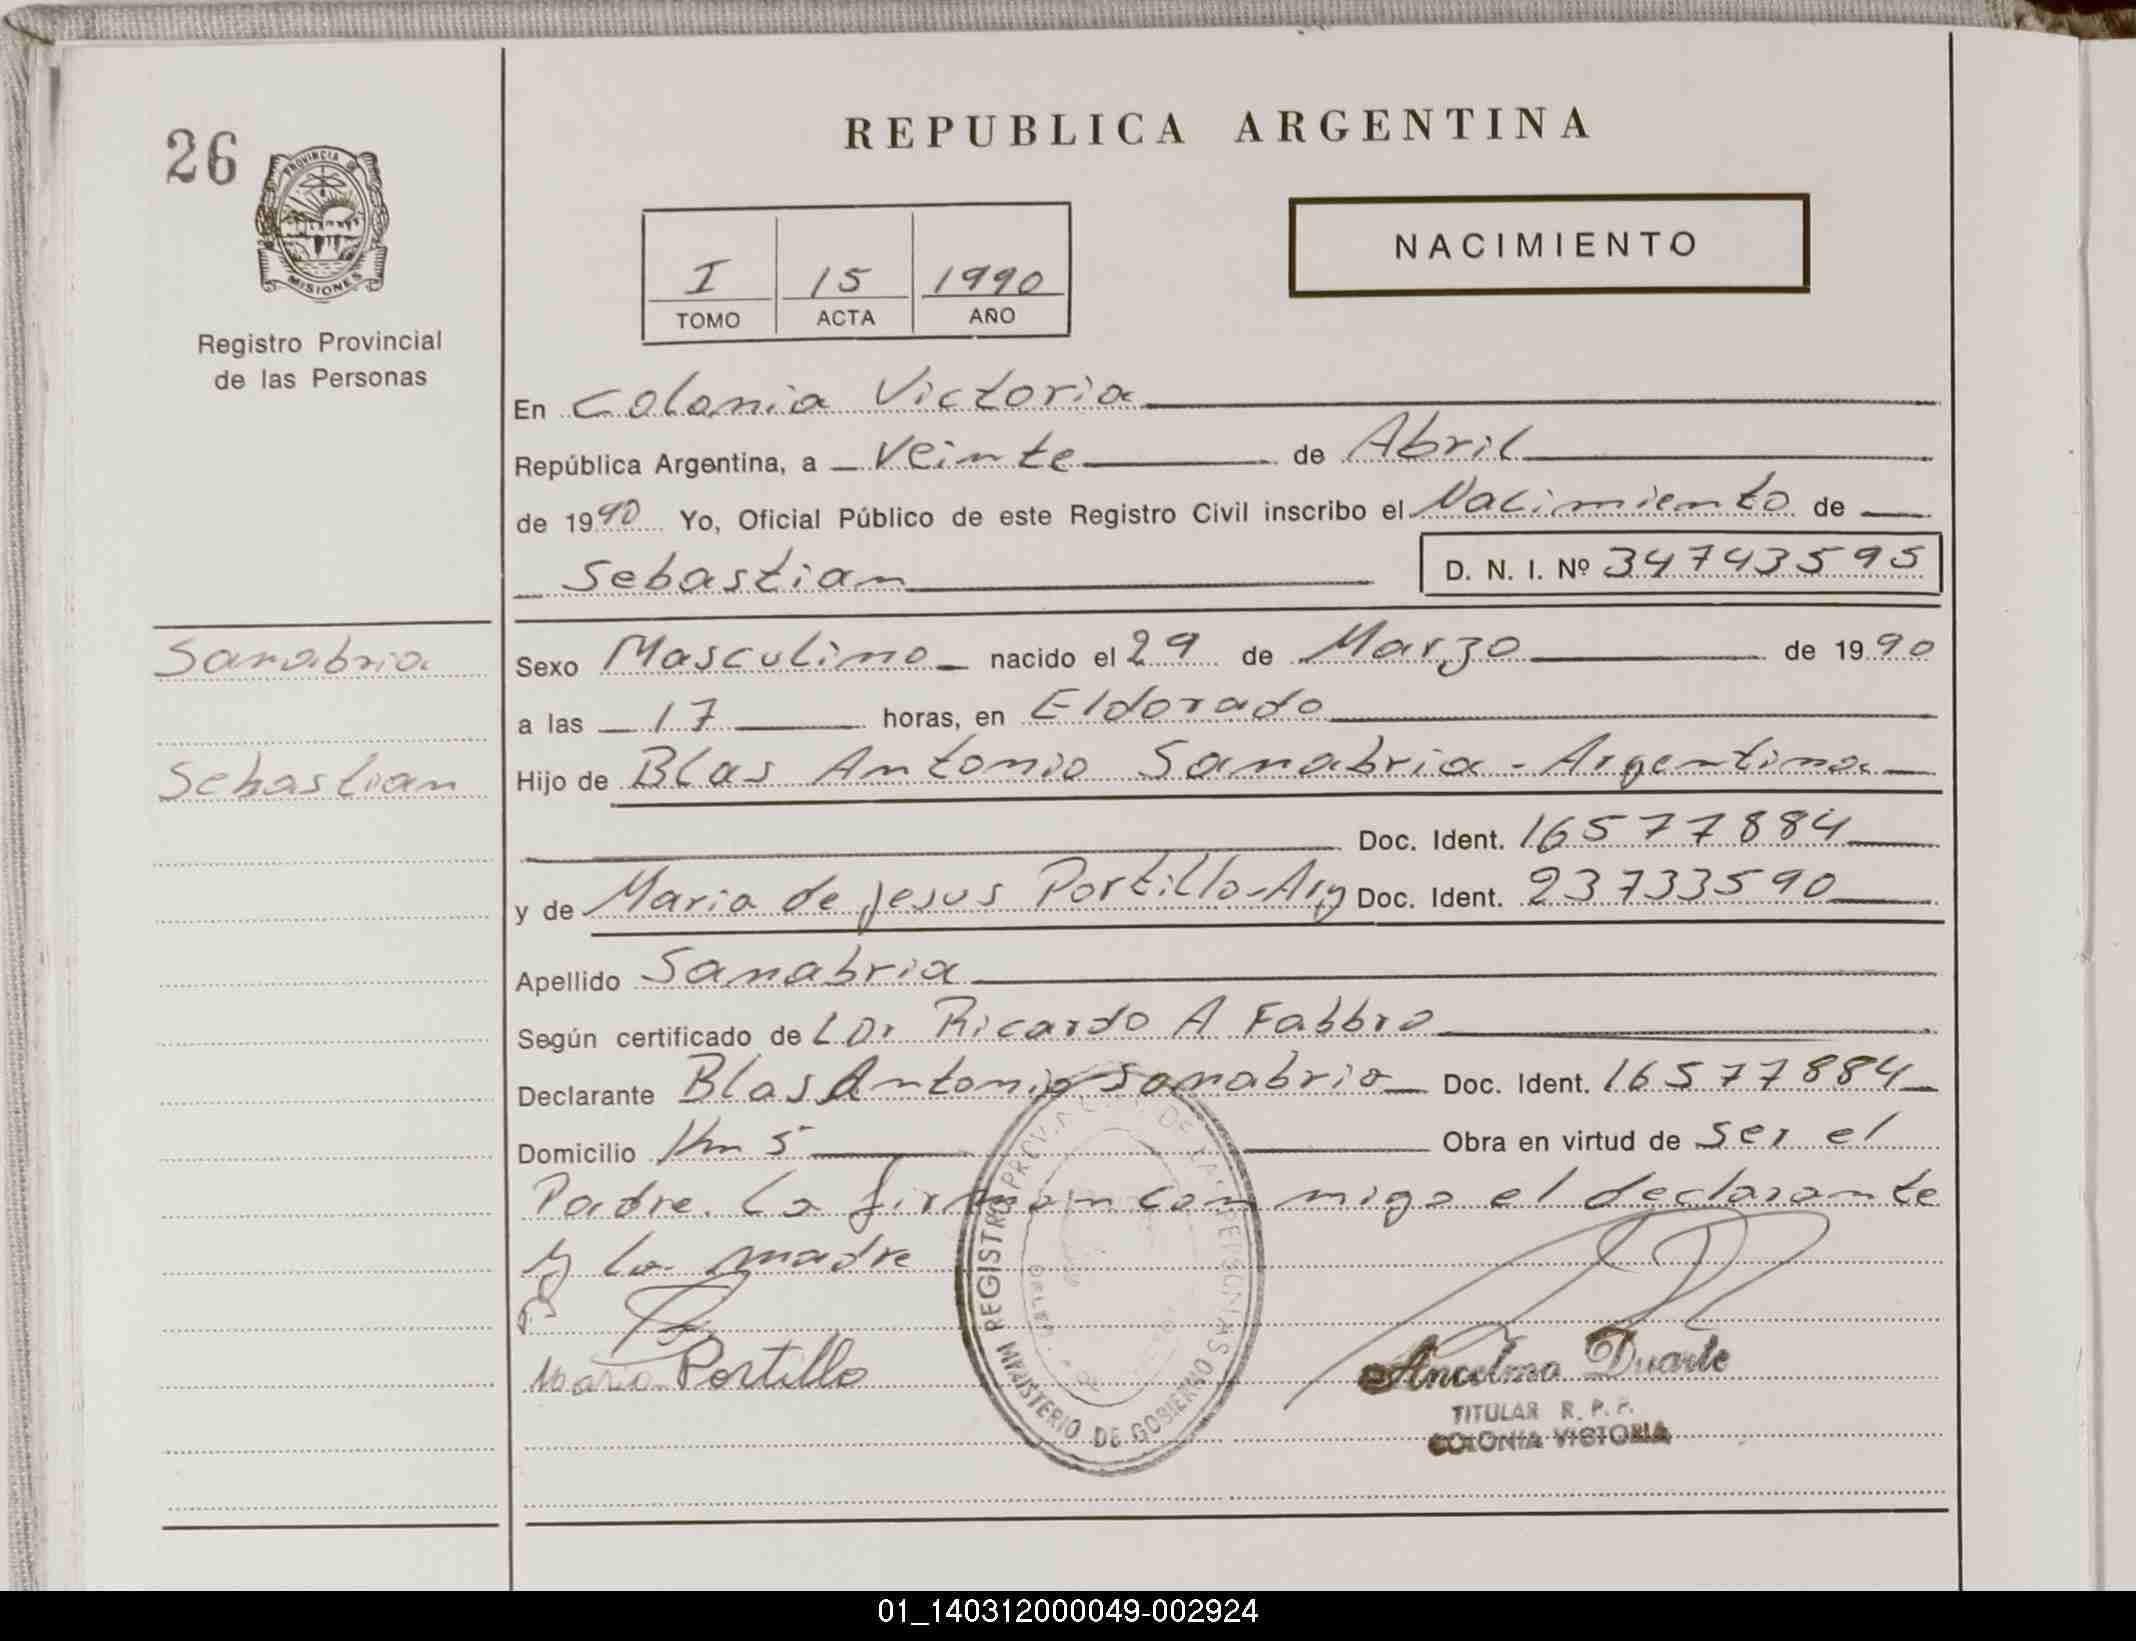 26
PROVINCIA DE
MISIONES
Registro Provincial
de las Personas
REPUBLICA ARGENTINA
NACIMIENTO
I 15 1990
TOMO ACTA AÑO
En Colonia Victoria
República Argentina, a Veinte de Abril
de 1990 Yo, Oficial Público de este Registro Civil inscribo el Nacimiento de
Sebastian D. N. I. Nº 34743595
Sanabria
Sebastian
Sexo Masculino nacido el 29 de Marzo de 1990
a las 17 horas, en Eldorado
Hijo de Blas Antonio Sanabria - Argentina
Doc. Ident. 16577884
y de Maria de Jesus Portillo - Arg Doc. Ident. 23733590
Apellido Sanabria
Según certificado de L Dr Ricardo A Fabbro
Declarante Blas Antonio Sanabria Doc. Ident. 16577884
Domicilio Km 5 Obra en virtud de ser el
Padre. La firman conmigo el declarante
y la madre
Maria Portillo
REGISTRO PROV. DE LAS PERSONAS
MINISTERIO DE GOBIERNO
Ancelmo Duarte
TITULAR R. P. P.
COLONIA VICTORIA
01_140312000049-002924